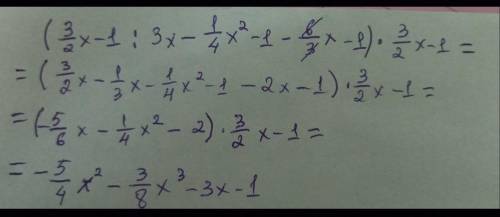 (3/2 x - 1 : 3x - 1/4 x² - 1 - 6/3 x - 1) · 3/2 x - 1 =
= (3/2 x - 1/3 x - 1/4 x² - 1 - 2x - 1) · 3/2 x - 1 =
= (-5/6 x - 1/4 x² - 2) · 3/2 x - 1 =
= -5/4 x² - 3/8 x³ - 3x - 1